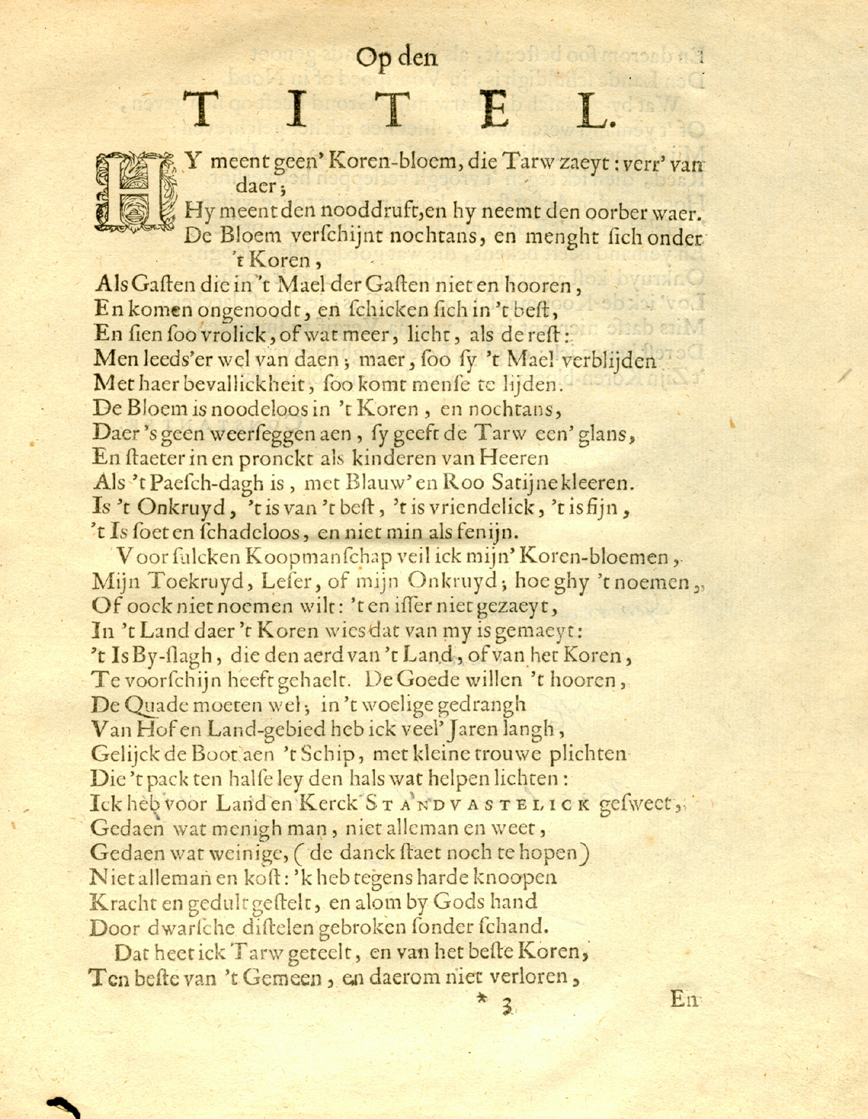 Op den
TITEL.
HY meent geen' Koren-bloem, die Tarw zaeyt: verr' van
daer;
Hy meent den nooddruft, en hy neemt den oorber waer.
De Bloem verſchijnt nochtans, en menght ſich onder
't Koren,
Als Gaſten die in 't Mael der Gaſten niet en hooren,
En komen ongenoodt, en ſchicken ſich in 't beſt,
En ſien ſoo vrolick, of wat meer, licht, als de reſt:
Men leeds'er wel van daen; maer, ſoo ſy 't Mael verblijden
Met haer bevallickheit, ſoo komt menſe te lijden.
De Bloem is noodeloos in 't Koren, en nochtans,
Daer 's geen weerſeggen aen, ſy geeft de Tarw een' glans,
En ſtaeter in en pronckt als kinderen van Heeren
Als 't Paeſch-dagh is, met Blauw' en Roo Satijne kleeren.
Is 't Onkruyd, 't is van 't beſt, 't is vriendelick, 't is fijn,
't Is ſoet en ſchadeloos, en niet min als fenijn.
Voor ſulcken Koopmanſchap veil ick mijn' Koren-bloemen,
Mijn Toekruyd, Leſer, of mijn Onkruyd; hoe ghy 't noemen,
Of oock niet noemen wilt: 't en iſſer niet gezaeyt,
In 't Land daer 't Koren wies dat van my is gemaeyt:
't Is By-ſlagh, die den aerd van 't Land, of van het Koren,
Te voorſchijn heeft gehaelt. De Goede willen 't hooren,
De Quade moeten wel; in 't woelige gedrangh
Van Hof en Land-gebied heb ick veel' Jaren langh,
Gelijck de Boot aen 't Schip, met kleine trouwe plichten
Die 't pack ten halſe ley den hals wat helpen lichten:
Ick heb voor Land en Kerck STANDVASTELICK geſweet,
Gedaen wat menigh man, niet alleman en weet,
Gedaen wat weinige, (de danck ſtaet noch te hopen)
Niet alleman en koſt: 'k heb tegens harde knoopen
Kracht en gedult geſtelt, en alom by Gods hand
Door dwarſche diſtelen gebroken ſonder ſchand.
Dat heet ick Tarw geteelt, en van het beſte Koren,
Ten beſte van 't Gemeen, en daerom niet verloren,
* 3 En